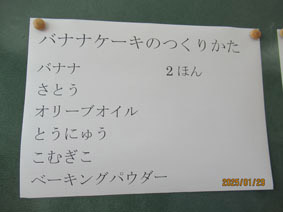 バナナケーキのつくりかた
バナナ 2ほん
さとう
オリーブオイル
とうにゅう
こむぎこ
ベーキングパウダー
2025/01/23